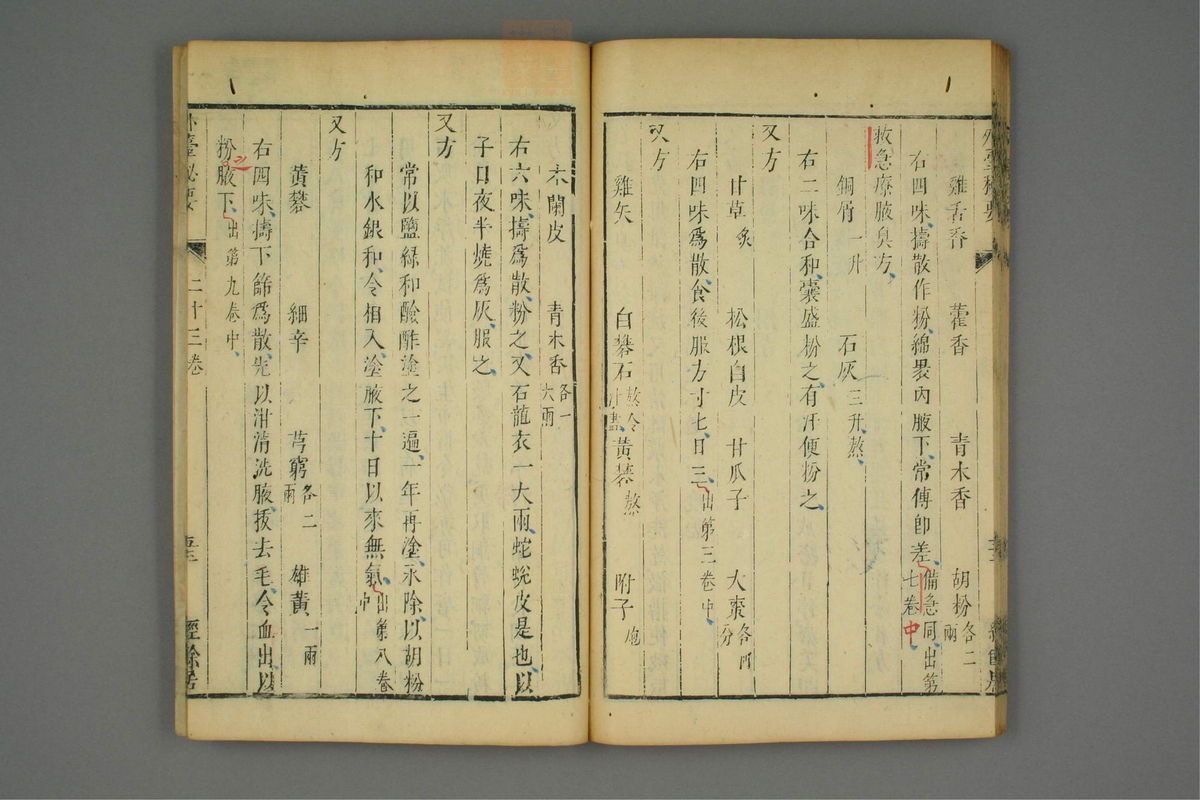 雞舌香 藿香 青木香 胡粉各二兩
右四味擣散作粉綿褁內腋下常傅卽差備急同出第七卷中
救急療腋臭方
銅屑一升 石灰三升熬
右二味合和囊盛粉之有汗便粉之
又方
甘草炙 松根白皮 甘瓜子 大棗各四分
右四味爲散食後服方寸匕日三出第三卷中
又方
雞矢 白礬石 黃礬熬 附子炮
木蘭皮 青木香各一六兩
右六味擣爲散粉之又石龍衣一大兩蛇蛻皮是也以
子日夜半燒爲灰服之
又方
常以鹽綠和醶酢塗之一遍一年再塗永除以胡粉
和水銀和令相入塗腋下十日以來無氣出第八卷中
又方
黃礬 細辛 芎藭各二兩 雄黃一兩
右四味擣下篩爲散先以泔清洗腋拔去毛令血出以
粉腋下出第九卷中
外臺祕要 二十三卷 經餘居